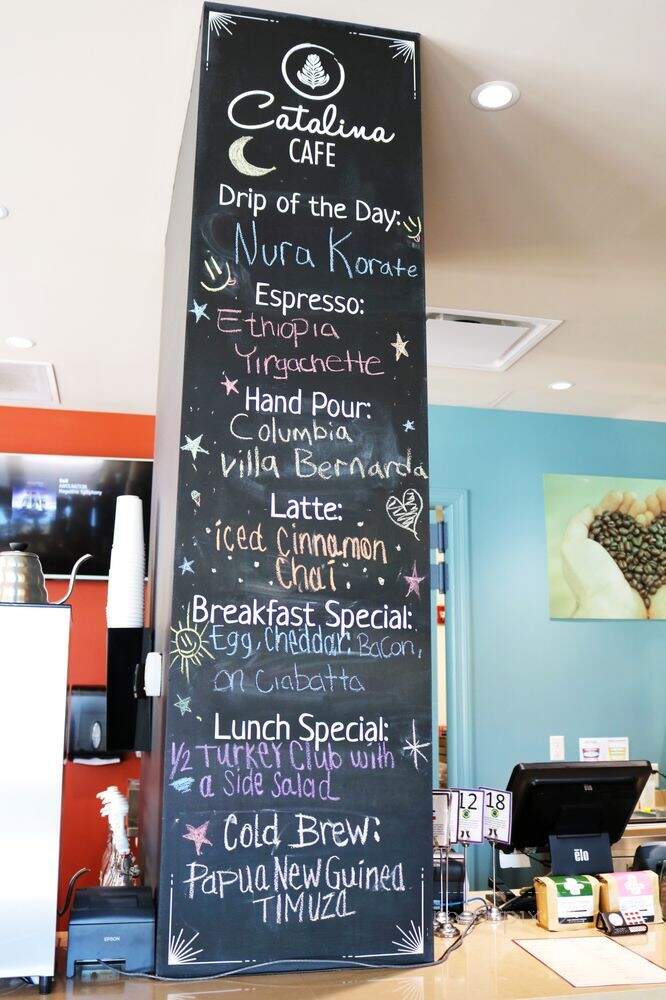 Catalina
CAFE
Drip of the Day:
Nura Korate
Espresso:
Ethiopia
Yirgachette
Hand Pour:
Columbia
Villa Bernarda
Latte:
iced Cinnamon
Chai
Breakfast Special:
Egg, Cheddar, Bacon,
on Ciabatta
Lunch Special:
1/2 Turkey Club with
a Side Salad
Cold Brew:
Papua New Guinea
TIMUZA
12
18
elo
EPSON